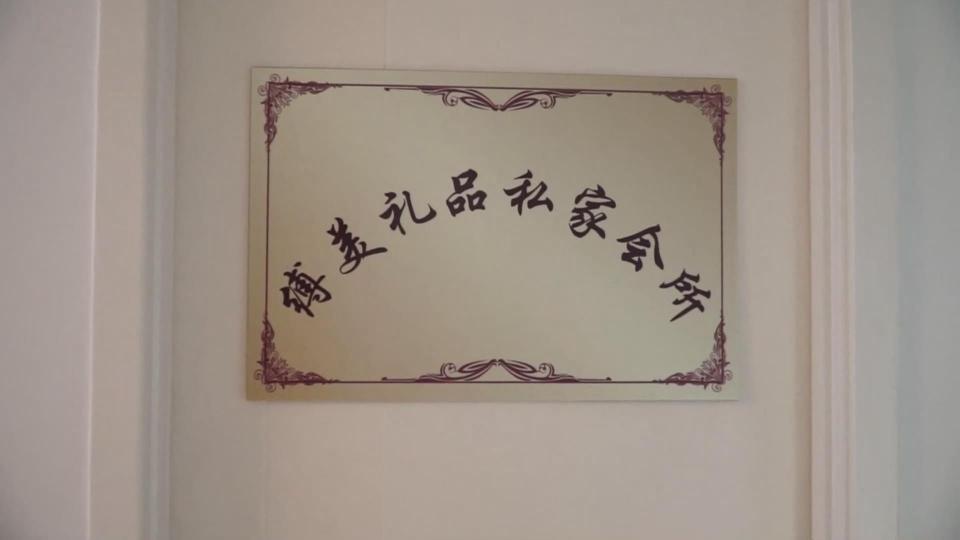 缚美礼品私家会所